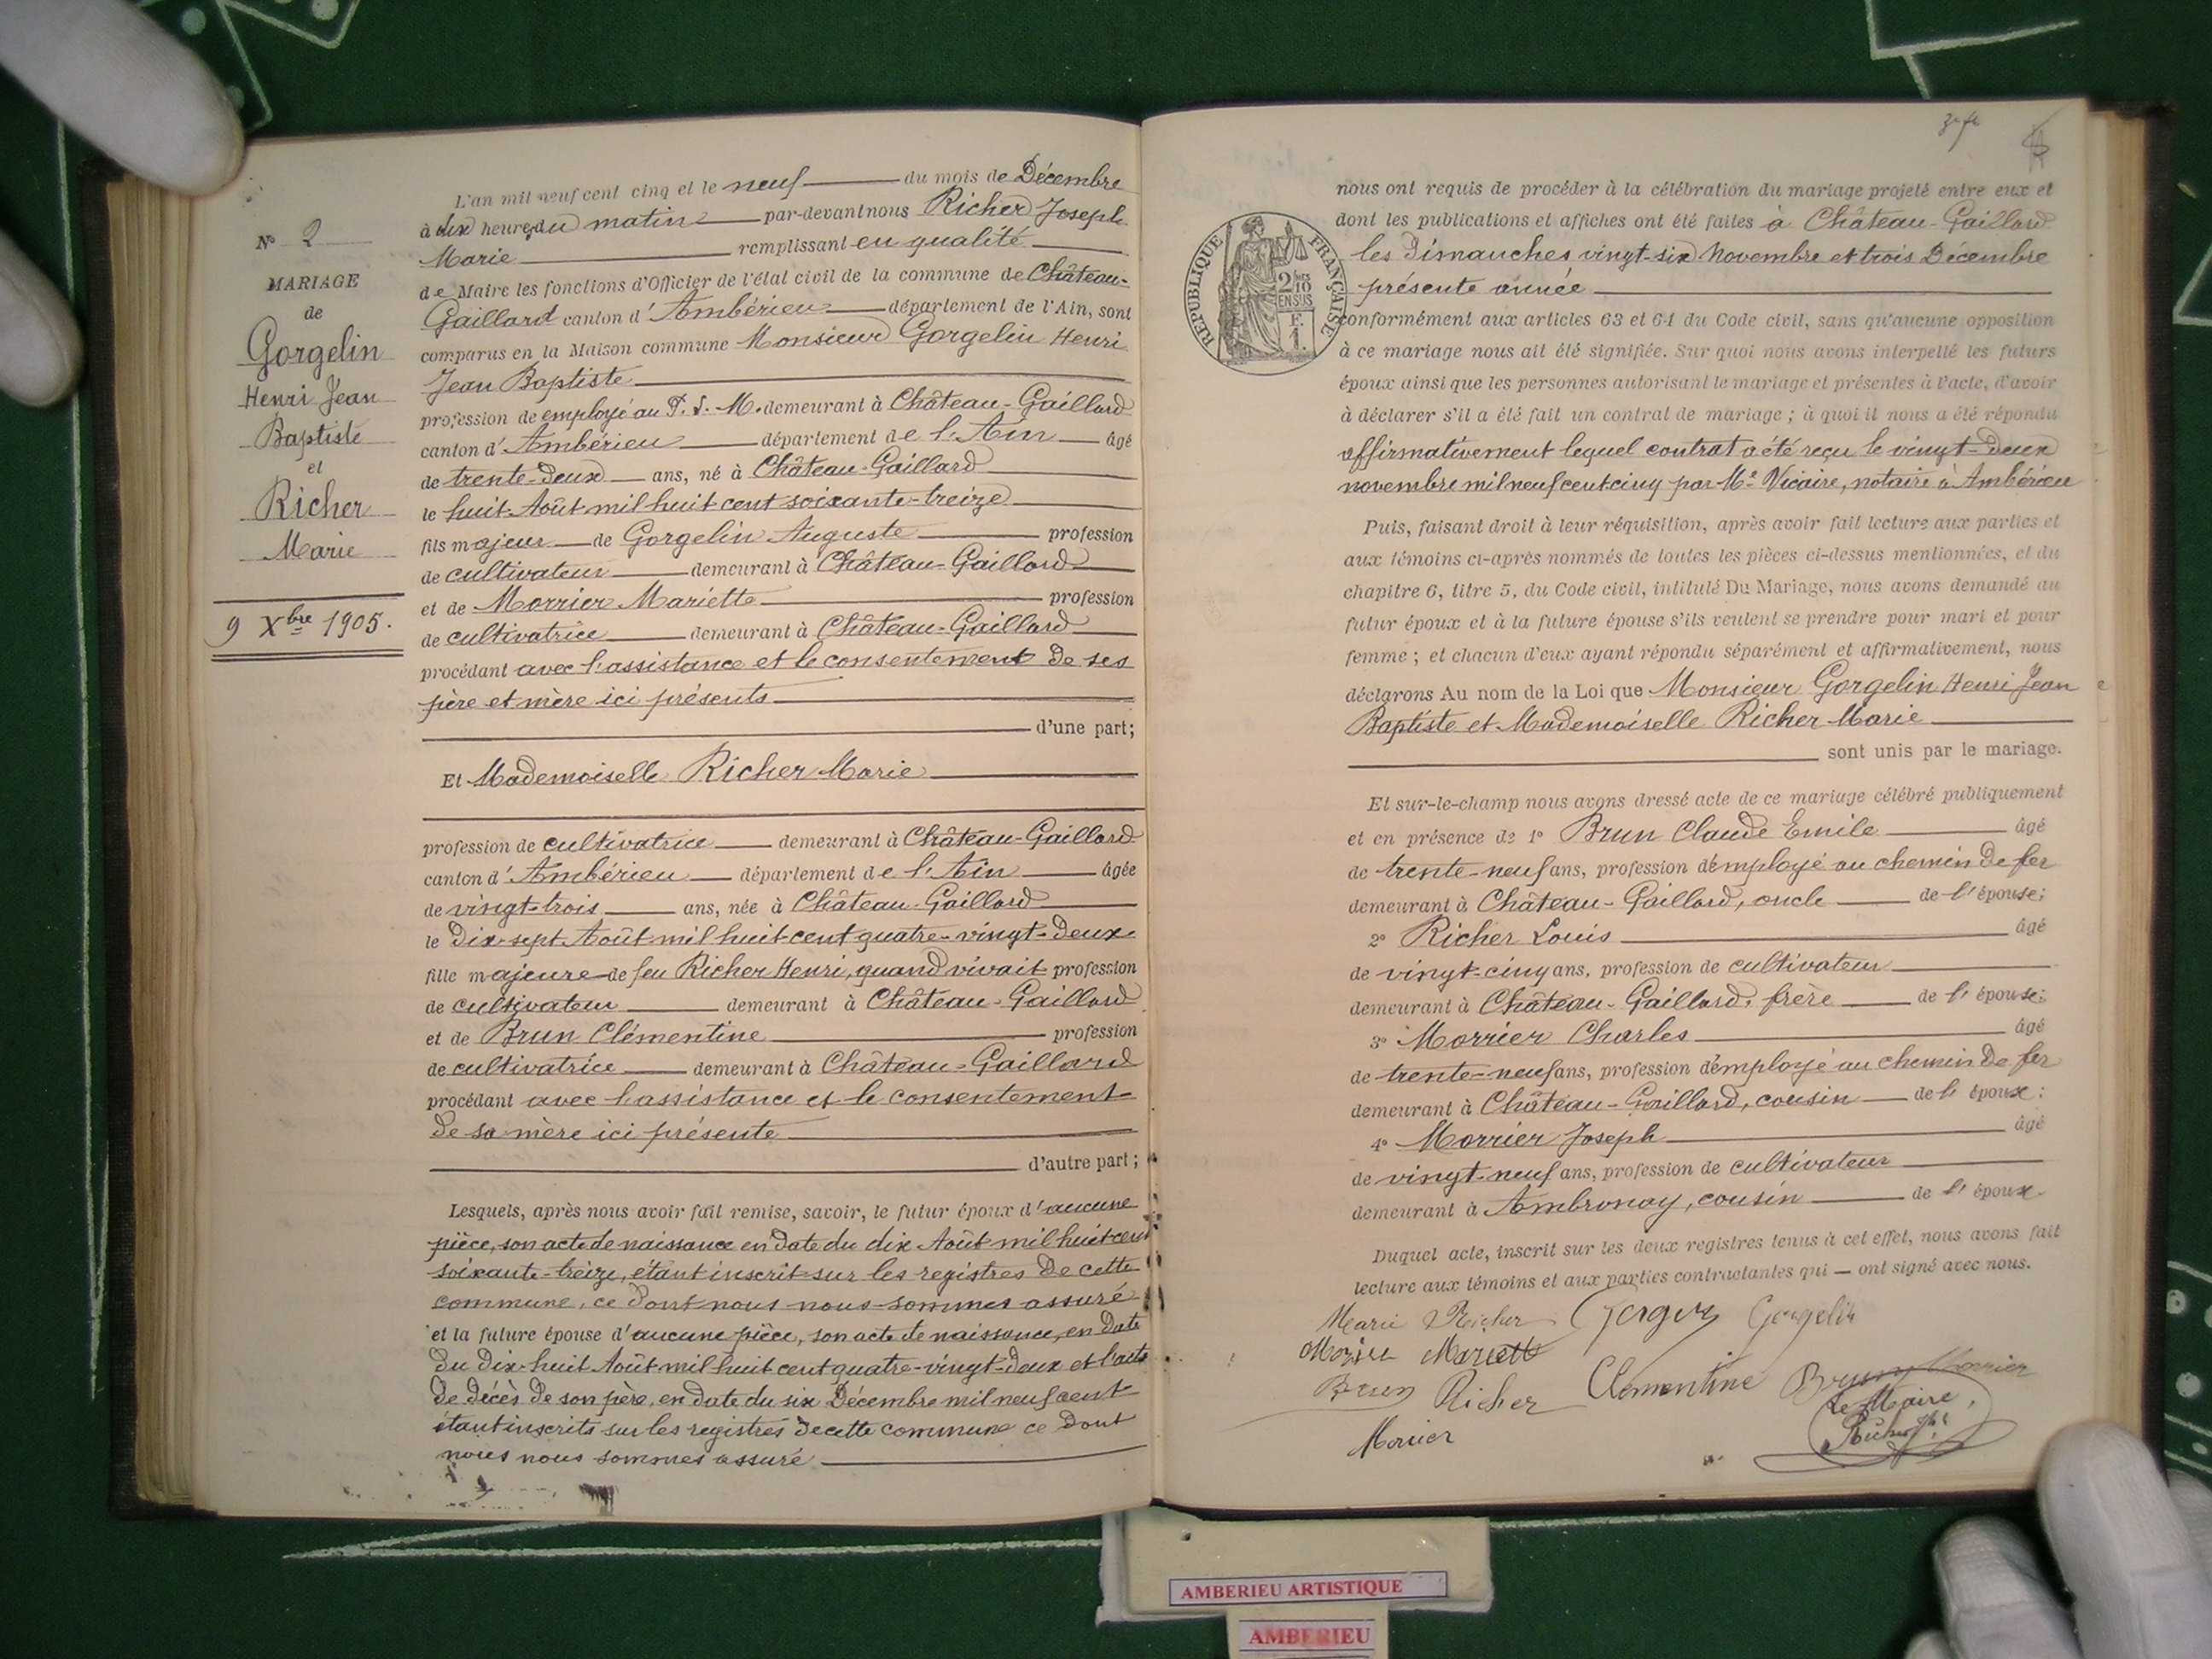 N° 2
MARIAGE
de
Gorgelin
Henri Jean
Baptiste
et
Richer
Marie
9 Xbre 1905.
L'an mil neuf cent cinq et le neuf du mois de Décembre
à dix heures du matin par-devant nous Richer Joseph
Marie remplissant en qualité
de Maire les fonctions d'Officier de l'état civil de la commune de Château-
Gaillard canton d'Ambérieu département de l'Ain, sont
comparus en la Maison commune Monsieur Gorgelin Henri
Jean Baptiste
profession de employé au P. L. M. demeurant à Château-Gaillard
canton d'Ambérieu département de l'Ain âgé
de trente-deux ans, né à Château-Gaillard
le huit Août mil huit cent soixante-treize
fils majeur de Gorgelin Auguste profession
de cultivateur demeurant à Château-Gaillard
et de Morrier Mariette profession
de cultivatrice demeurant à Château-Gaillard
procédant avec l'assistance et le consentement de ses
père et mère ici présents
d'une part;
Et Mademoiselle Richer Marie
profession de cultivatrice demeurant à Château-Gaillard
canton d'Ambérieu département de l'Ain âgée
de vingt-trois ans, née à Château-Gaillard
le dix-sept Août mil huit cent quatre-vingt-deux
fille majeure de feu Richer Henri, quand vivait profession
de cultivateur demeurant à Château-Gaillard
et de Brun Clémentine profession
de cultivatrice demeurant à Château-Gaillard
procédant avec l'assistance et le consentement
de sa mère ici présente
d'autre part;
Lesquels, après nous avoir fait remise, savoir, le futur époux d'aucune
pièce, son acte de naissance en date du dix Août mil huit cent
soixante-treize, étant inscrit sur les registres de cette
commune, ce dont nous nous sommes assuré
et la future épouse d'aucune pièce, son acte de naissance, en date
du dix-huit Août mil huit cent quatre-vingt-deux et l'acte
de décès de son père, en date du six Décembre mil neuf cent
étant inscrits sur les registres de cette commune ce dont
nous nous sommes assuré
RÉPUBLIQUE FRANÇAISE
2/10
EN SUS
nous ont requis de procéder à la célébration du mariage projeté entre eux et
dont les publications et affiches ont été faites à Château-Gaillard
les Dimanches vingt-six Novembre et trois Décembre
présente année
conformément aux articles 63 et 64 du Code civil, sans qu'aucune opposition
à ce mariage nous ait été signifiée. Sur quoi nous avons interpellé les futurs
époux ainsi que les personnes autorisant le mariage et présentes à l'acte, d'avoir
à déclarer s'il a été fait un contrat de mariage; à quoi il nous a été répondu
affirmativement lequel contrat a été reçu le vingt-deux
novembre mil neuf cent cinq par Me Vicaire, notaire à Ambérieu
Puis, faisant droit à leur réquisition, après avoir fait lecture aux parties et
aux témoins ci-après nommés de toutes les pièces ci-dessus mentionnées, et du
chapitre 6, titre 5, du Code civil, intitulé Du Mariage, nous avons demandé au
futur époux et à la future épouse s'ils veulent se prendre pour mari et pour
femme; et chacun d'eux ayant répondu séparément et affirmativement, nous
déclarons Au nom de la Loi que Monsieur Gorgelin Henri Jean
Baptiste et Mademoiselle Richer Marie
sont unis par le mariage.
Et sur-le-champ nous avons dressé acte de ce mariage célébré publiquement
et en présence de 1° Brun Claude Emile âgé
de trente-neuf ans, profession d'employé au chemin de fer
demeurant à Château-Gaillard, oncle de l'épouse;
2° Richer Louis âgé
de vingt-cinq ans, profession de cultivateur
demeurant à Château-Gaillard, frère de l'épouse;
3° Morrier Charles âgé
de trente-neuf ans, profession d'employé au chemin de fer
demeurant à Château-Gaillard, cousin de l'époux;
4° Morrier Joseph âgé
de vingt-neuf ans, profession de cultivateur
demeurant à Ambronay, cousin de l'époux.
Duquel acte, inscrit sur les deux registres tenus à cet effet, nous avons fait
lecture aux témoins et aux parties contractantes qui — ont signé avec nous.
Marie Richer Gorgelin
Mariett
Brun Richer Clementine Brun Morrier
Le Maire,
Morrier
Richer
AMBERIEU ARTISTIQUE
AMBERIEU